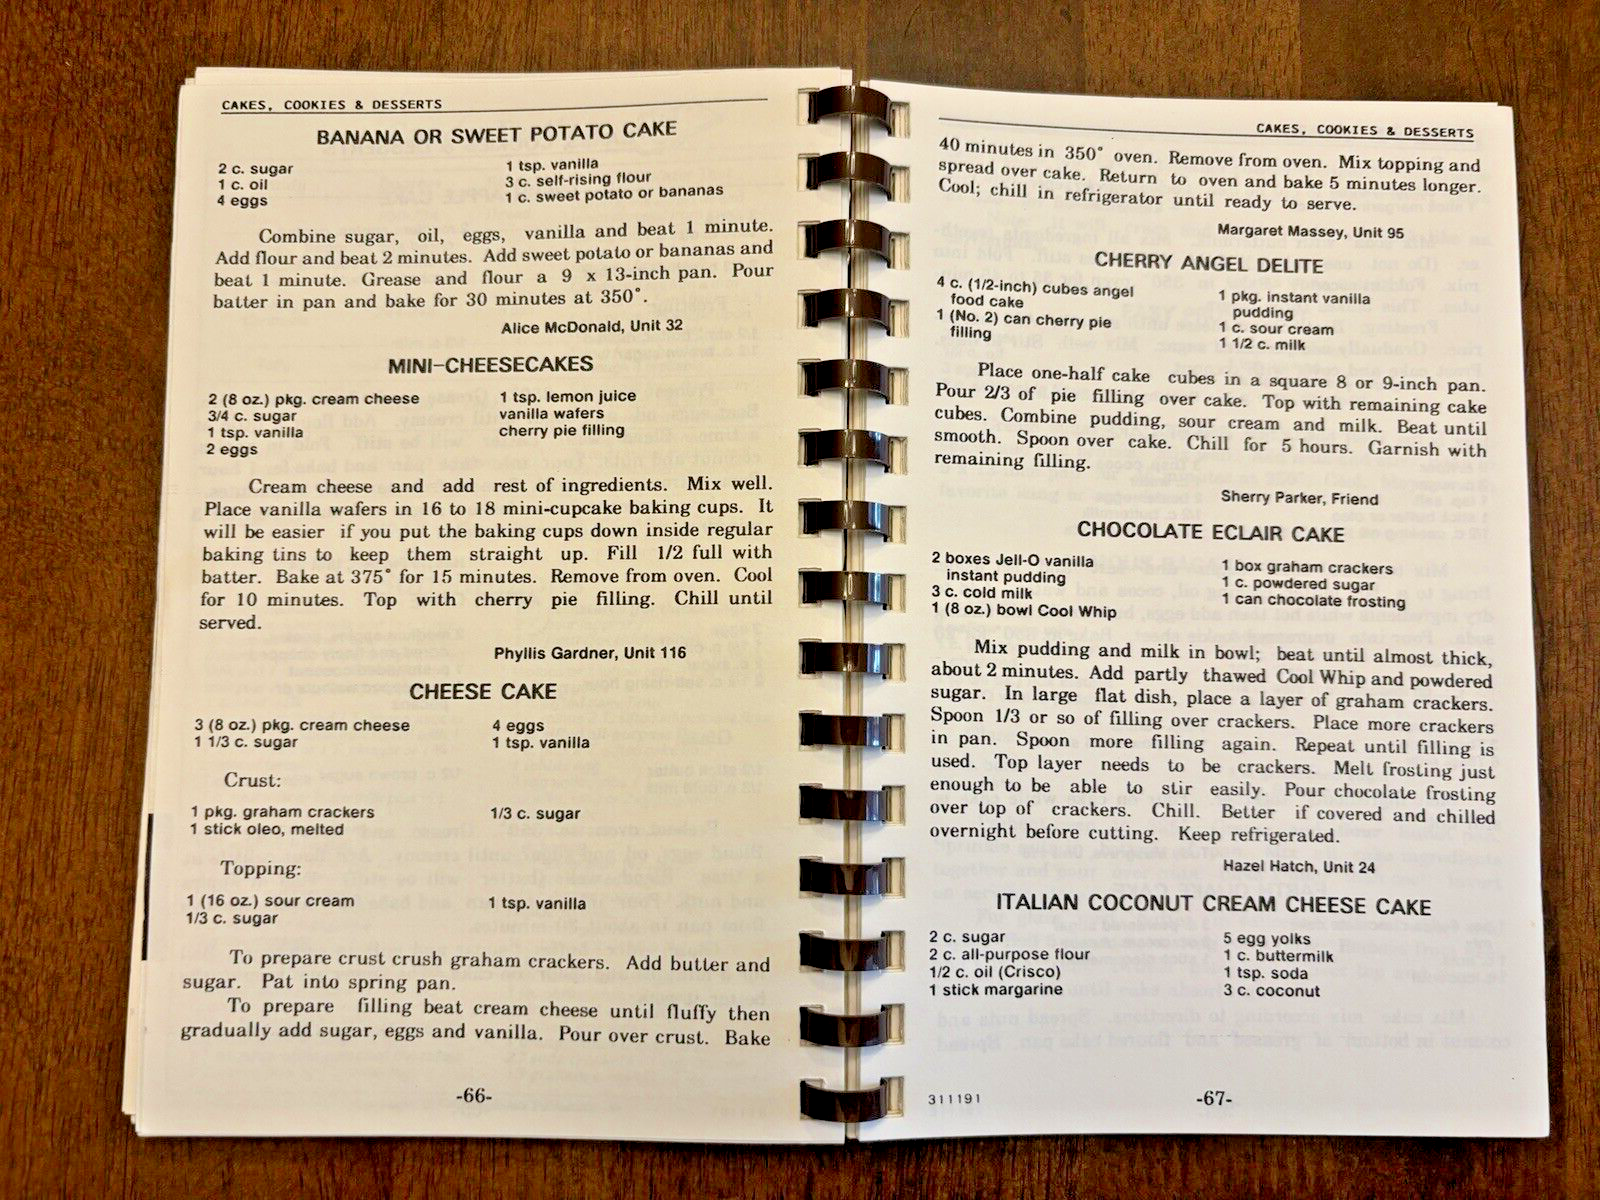 CAKES, COOKIES & DESSERTS
BANANA OR SWEET POTATO CAKE
2 c. sugar
1 c. oil
4 eggs
1 tsp. vanilla
3 c. self-rising flour
1 c. sweet potato or bananas
Combine sugar, oil, eggs, vanilla and beat 1 minute.
Add flour and beat 2 minutes. Add sweet potato or bananas and
beat 1 minute. Grease and flour a 9 x 13-inch pan. Pour
batter in pan and bake for 30 minutes at 350°.
Alice McDonald, Unit 32
MINI-CHEESECAKES
2 (8 oz.) pkg. cream cheese
3/4 c. sugar
1 tsp. vanilla
2 eggs
1 tsp. lemon juice
vanilla wafers
cherry pie filling
Cream cheese and add rest of ingredients. Mix well.
Place vanilla wafers in 16 to 18 mini-cupcake baking cups. It
will be easier if you put the baking cups down inside regular
baking tins to keep them straight up. Fill 1/2 full with
batter. Bake at 375° for 15 minutes. Remove from oven. Cool
for 10 minutes. Top with cherry pie filling. Chill until
served.
Phyllis Gardner, Unit 116
CHEESE CAKE
3 (8 oz.) pkg. cream cheese
1 1/3 c. sugar
4 eggs
1 tsp. vanilla
Crust:
1 pkg. graham crackers
1 stick oleo, melted
1/3 c. sugar
Topping:
1 (16 oz.) sour cream
1/3 c. sugar
1 tsp. vanilla
To prepare crust crush graham crackers. Add butter and
sugar. Pat into spring pan.
To prepare filling beat cream cheese until fluffy then
gradually add sugar, eggs and vanilla. Pour over crust. Bake
-66-
CAKES, COOKIES & DESSERTS
40 minutes in 350° oven. Remove from oven. Mix topping and
spread over cake. Return to oven and bake 5 minutes longer.
Cool; chill in refrigerator until ready to serve.
Margaret Massey, Unit 95
CHERRY ANGEL DELITE
4 c. (1/2-inch) cubes angel
food cake
1 (No. 2) can cherry pie
filling
1 pkg. instant vanilla
pudding
1 c. sour cream
1 1/2 c. milk
Place one-half cake cubes in a square 8 or 9-inch pan.
Pour 2/3 of pie filling over cake. Top with remaining cake
cubes. Combine pudding, sour cream and milk. Beat until
smooth. Spoon over cake. Chill for 5 hours. Garnish with
remaining filling.
Sherry Parker, Friend
CHOCOLATE ECLAIR CAKE
2 boxes Jell-O vanilla
instant pudding
3 c. cold milk
1 (8 oz.) bowl Cool Whip
1 box graham crackers
1 c. powdered sugar
1 can chocolate frosting
Mix pudding and milk in bowl; beat until almost thick,
about 2 minutes. Add partly thawed Cool Whip and powdered
sugar. In large flat dish, place a layer of graham crackers.
Spoon 1/3 or so of filling over crackers. Place more crackers
in pan. Spoon more filling again. Repeat until filling is
used. Top layer needs to be crackers. Melt frosting just
enough to be able to stir easily. Pour chocolate frosting
over top of crackers. Chill. Better if covered and chilled
overnight before cutting. Keep refrigerated.
Hazel Hatch, Unit 24
ITALIAN COCONUT CREAM CHEESE CAKE
2 c. sugar
2 c. all-purpose flour
1/2 c. oil (Crisco)
1 stick margarine
5 egg yolks
1 c. buttermilk
1 tsp. soda
3 c. coconut
311191
-67-